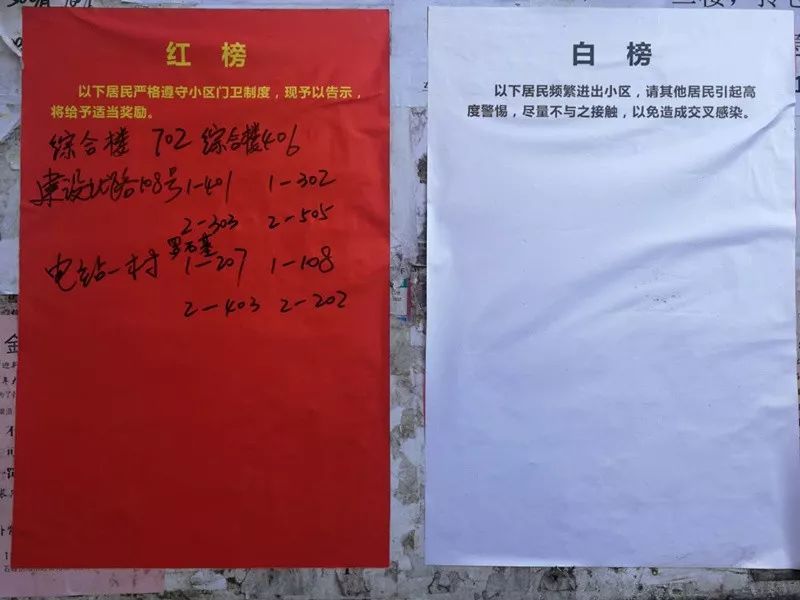 红榜
以下居民严格遵守小区门卫制度，现予以告示，
将给予适当奖励。
综合楼 702 综合楼406
建设北路108号1-401 1-302
2-303 2-505
电站一村 1-207 1-108
2-403 2-202
白榜
以下居民频繁进出小区，请其他居民引起高
度警惕，尽量不与之接触，以免造成交叉感染。